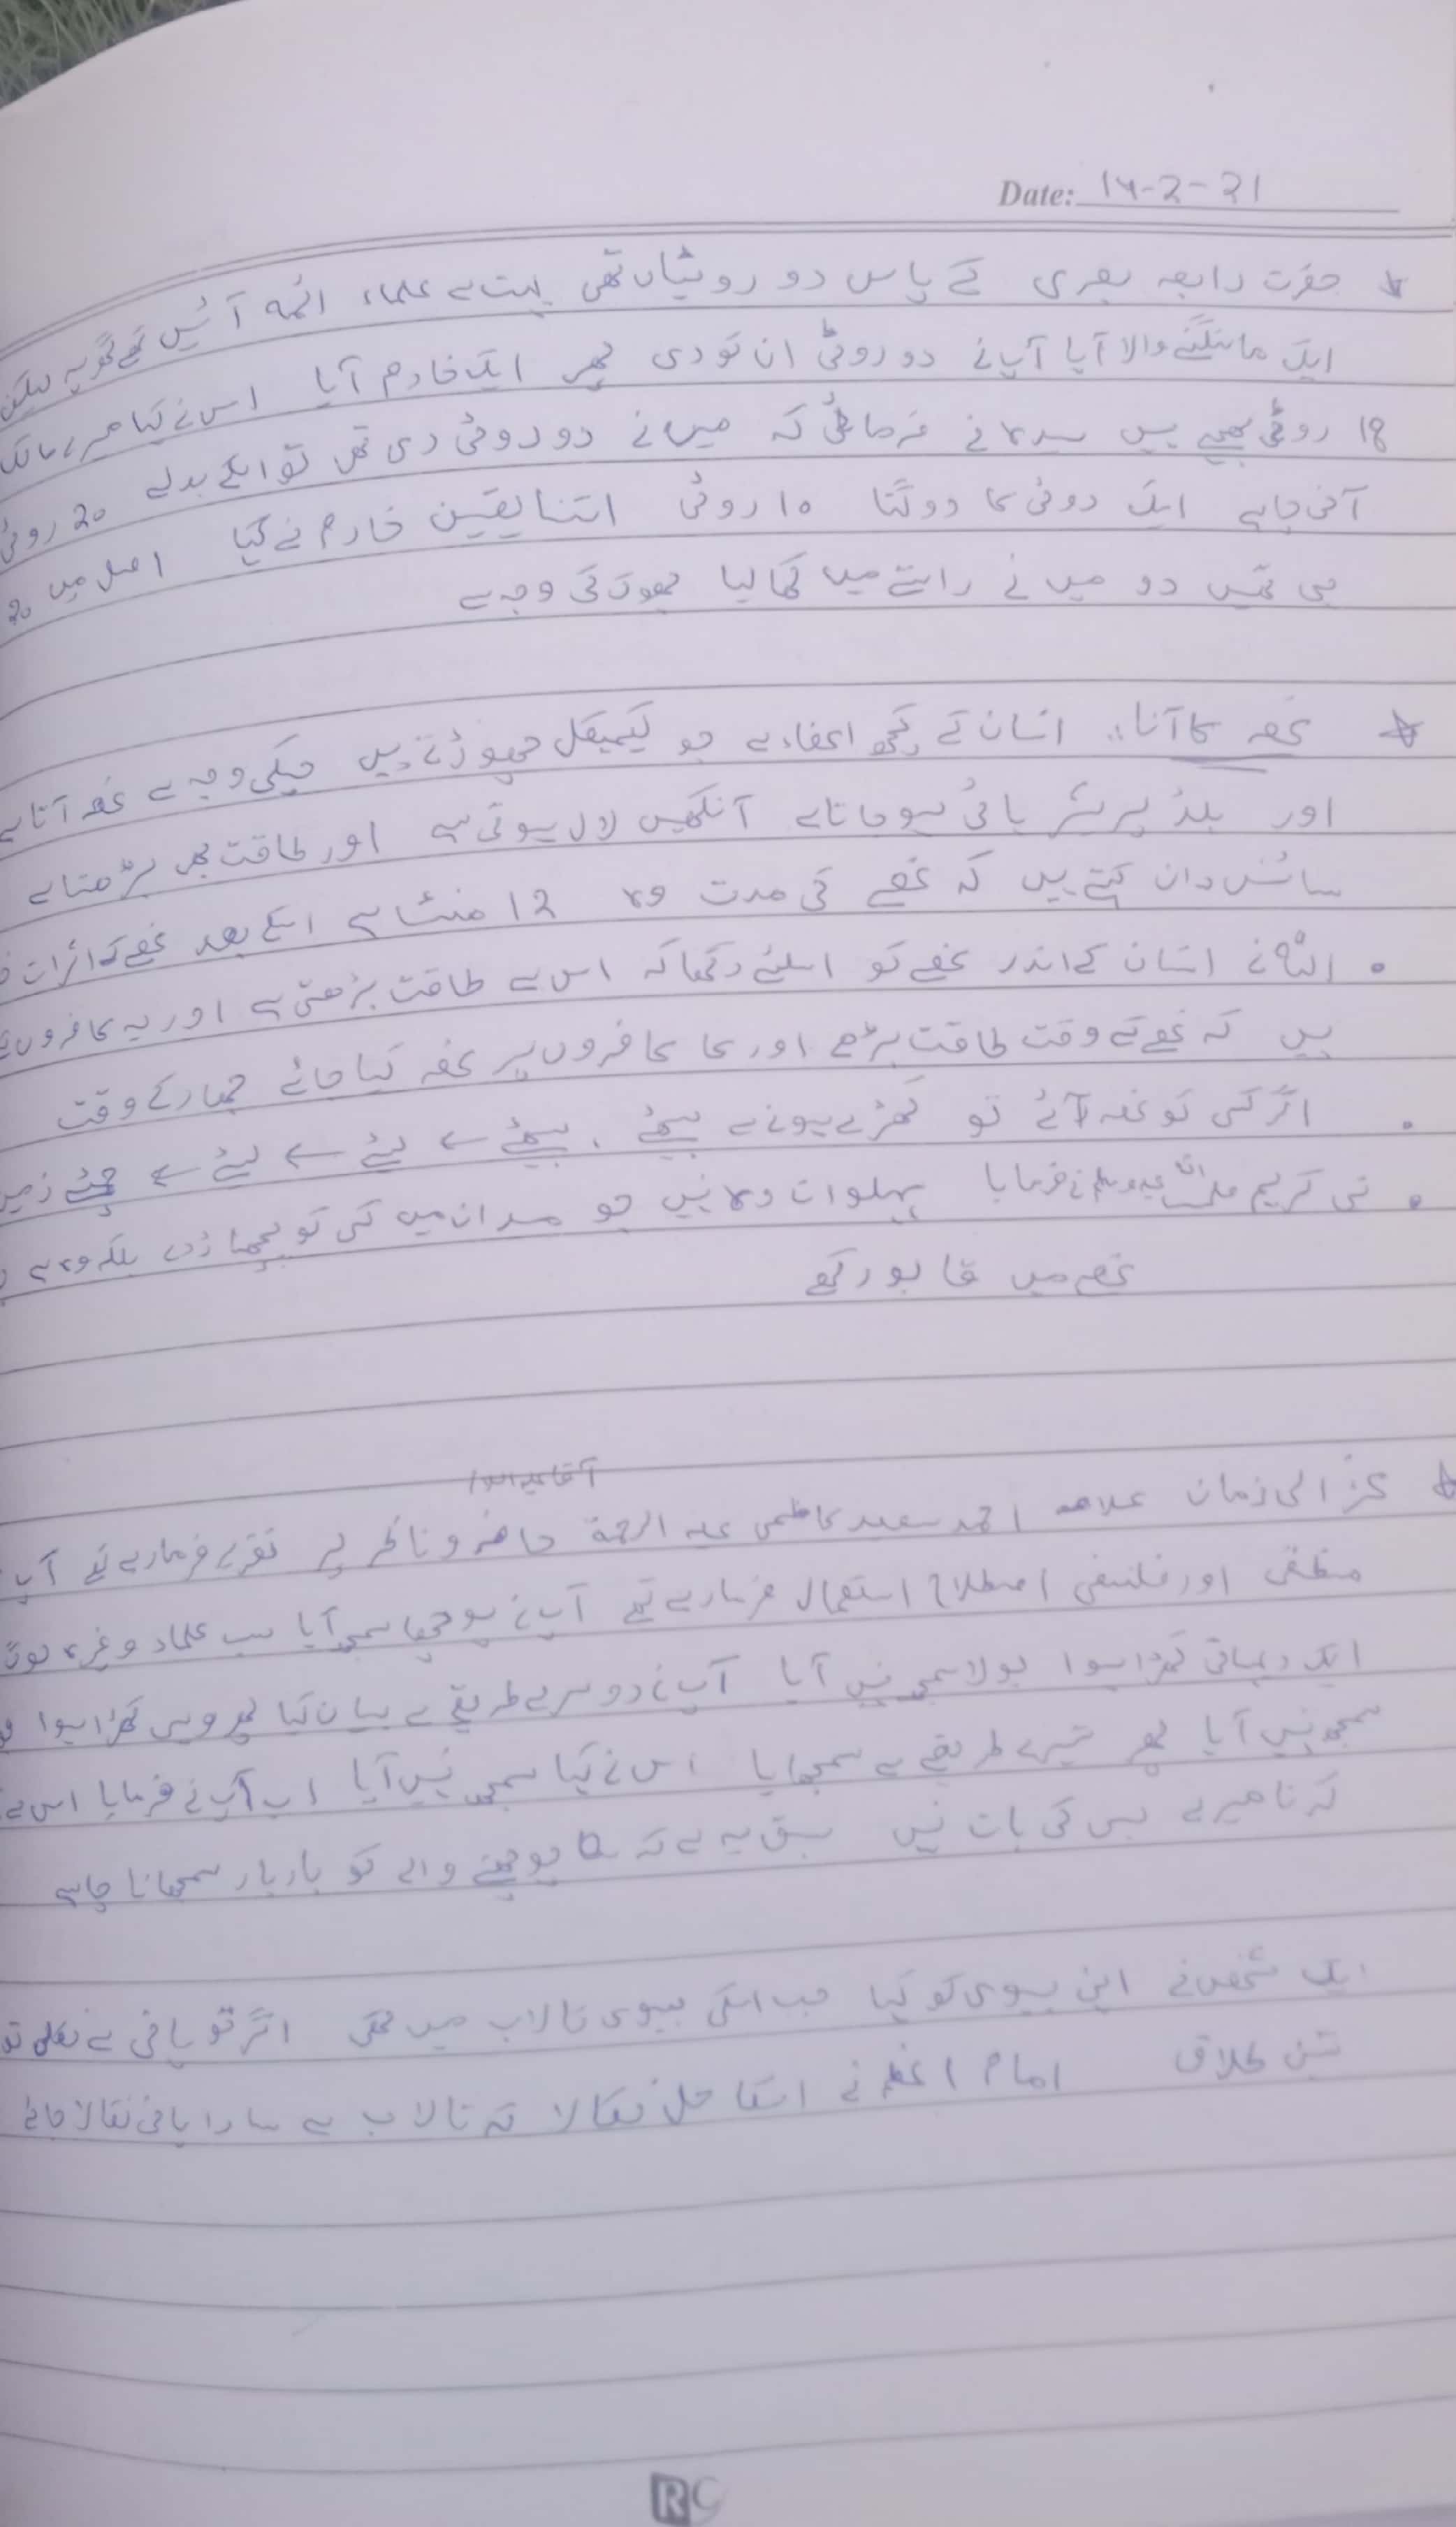 Date: 14-2-21
حضرت رابعہ بصری کے پاس دو روٹیاں تھی بہت سے علماء ائمہ آئیں تھے گویہ لیکن
ایک مانگنے والا آیا آپ نے دو روٹی ان کو دی پھر ایک خادم آیا اس نے کہا میرے مالک
18 روٹی بھیجے ہیں سیدہ نے فرمائی کہ میں نے دو روٹی دی تھی تو اسکے بدلے 20 روٹی
آنی چاہے ایک روٹی کا دوگنا 10 روٹی اتنا یقین خادم نے کہا اصل میں 20
ہی تھیں دو میں نے راستے میں کھا لیا بھوک کی وجہ سے
غصہ کا آنا:: انسان کے کچھ اعضاء ہے جو کیمیکل چھوڑتے ہیں جسکی وجہ سے غصہ آتا ہے
اور بلڈ پریشر ہائی ہو جاتا ہے آنکھیں لال ہوتی ہے اور طاقت بھی بڑھتا ہے
سائنس دان کہتے ہیں کہ غصے کی مدت وہ 12 منٹ ہے اسکے بعد غصے کے اثرات
• اللہ نے انسان کے اندر غصے کو اسلئے رکھا کہ اس سے طاقت بڑھتی ہے اور یہ کافروں
ہیں کہ غصے کے وقت طاقت بڑھے اور کا کافروں پر غصہ کیا جائے جہاد کے وقت
• اگر کسی کو غصہ آئے تو کھڑے ہونے سے بیٹھے ، بیٹھے ← لیٹے ← لیٹے ← چمٹے زمین
• نبی کریم صلی اللہ علیہ وسلم نے فرمایا پہلوان وہ نہیں جو میدان میں کسی کو پچھاڑدے بلکہ وہ ہے
غصہ میں قابو رکھے
آقا علیہ السلام
غزالی زمان علامہ احمد سعید کاظمی علیہ الرحمۃ حاضر و ناظر پر تقریر فرما رہے تھے آپ
منطقی اور فلسفی اصطلاح استعمال فرما رہے تھے آپ نے پوچھا سمجھ آیا سب علماء وغیرہ بولے
ایک دیہاتی کھڑا ہوا بولا سمجھ نہیں آیا آپ نے دوسرے طریقے سے بیان کیا پھر وہیں کھڑا ہوا
سمجھ نہیں آیا پھر تیسرے طریقے سے سمجھایا اس نے کہا سمجھ نہیں آیا اب آپ نے فرمایا اس سے
کہ نا میرے بس کی بات نہیں سبق یہ ہے کہ پوچھنے والے کو بار بار سمجھانا چاہے
ایک شخص نے اپنی بیوی کو کہا جب اسکی بیوی تالاب میں تھی اگر تو پانی سے نکلی تو
تین طلاق امام اعظم نے اسکا حل نکالا کہ تالاب سے سارا پانی نکالا جائے
RC